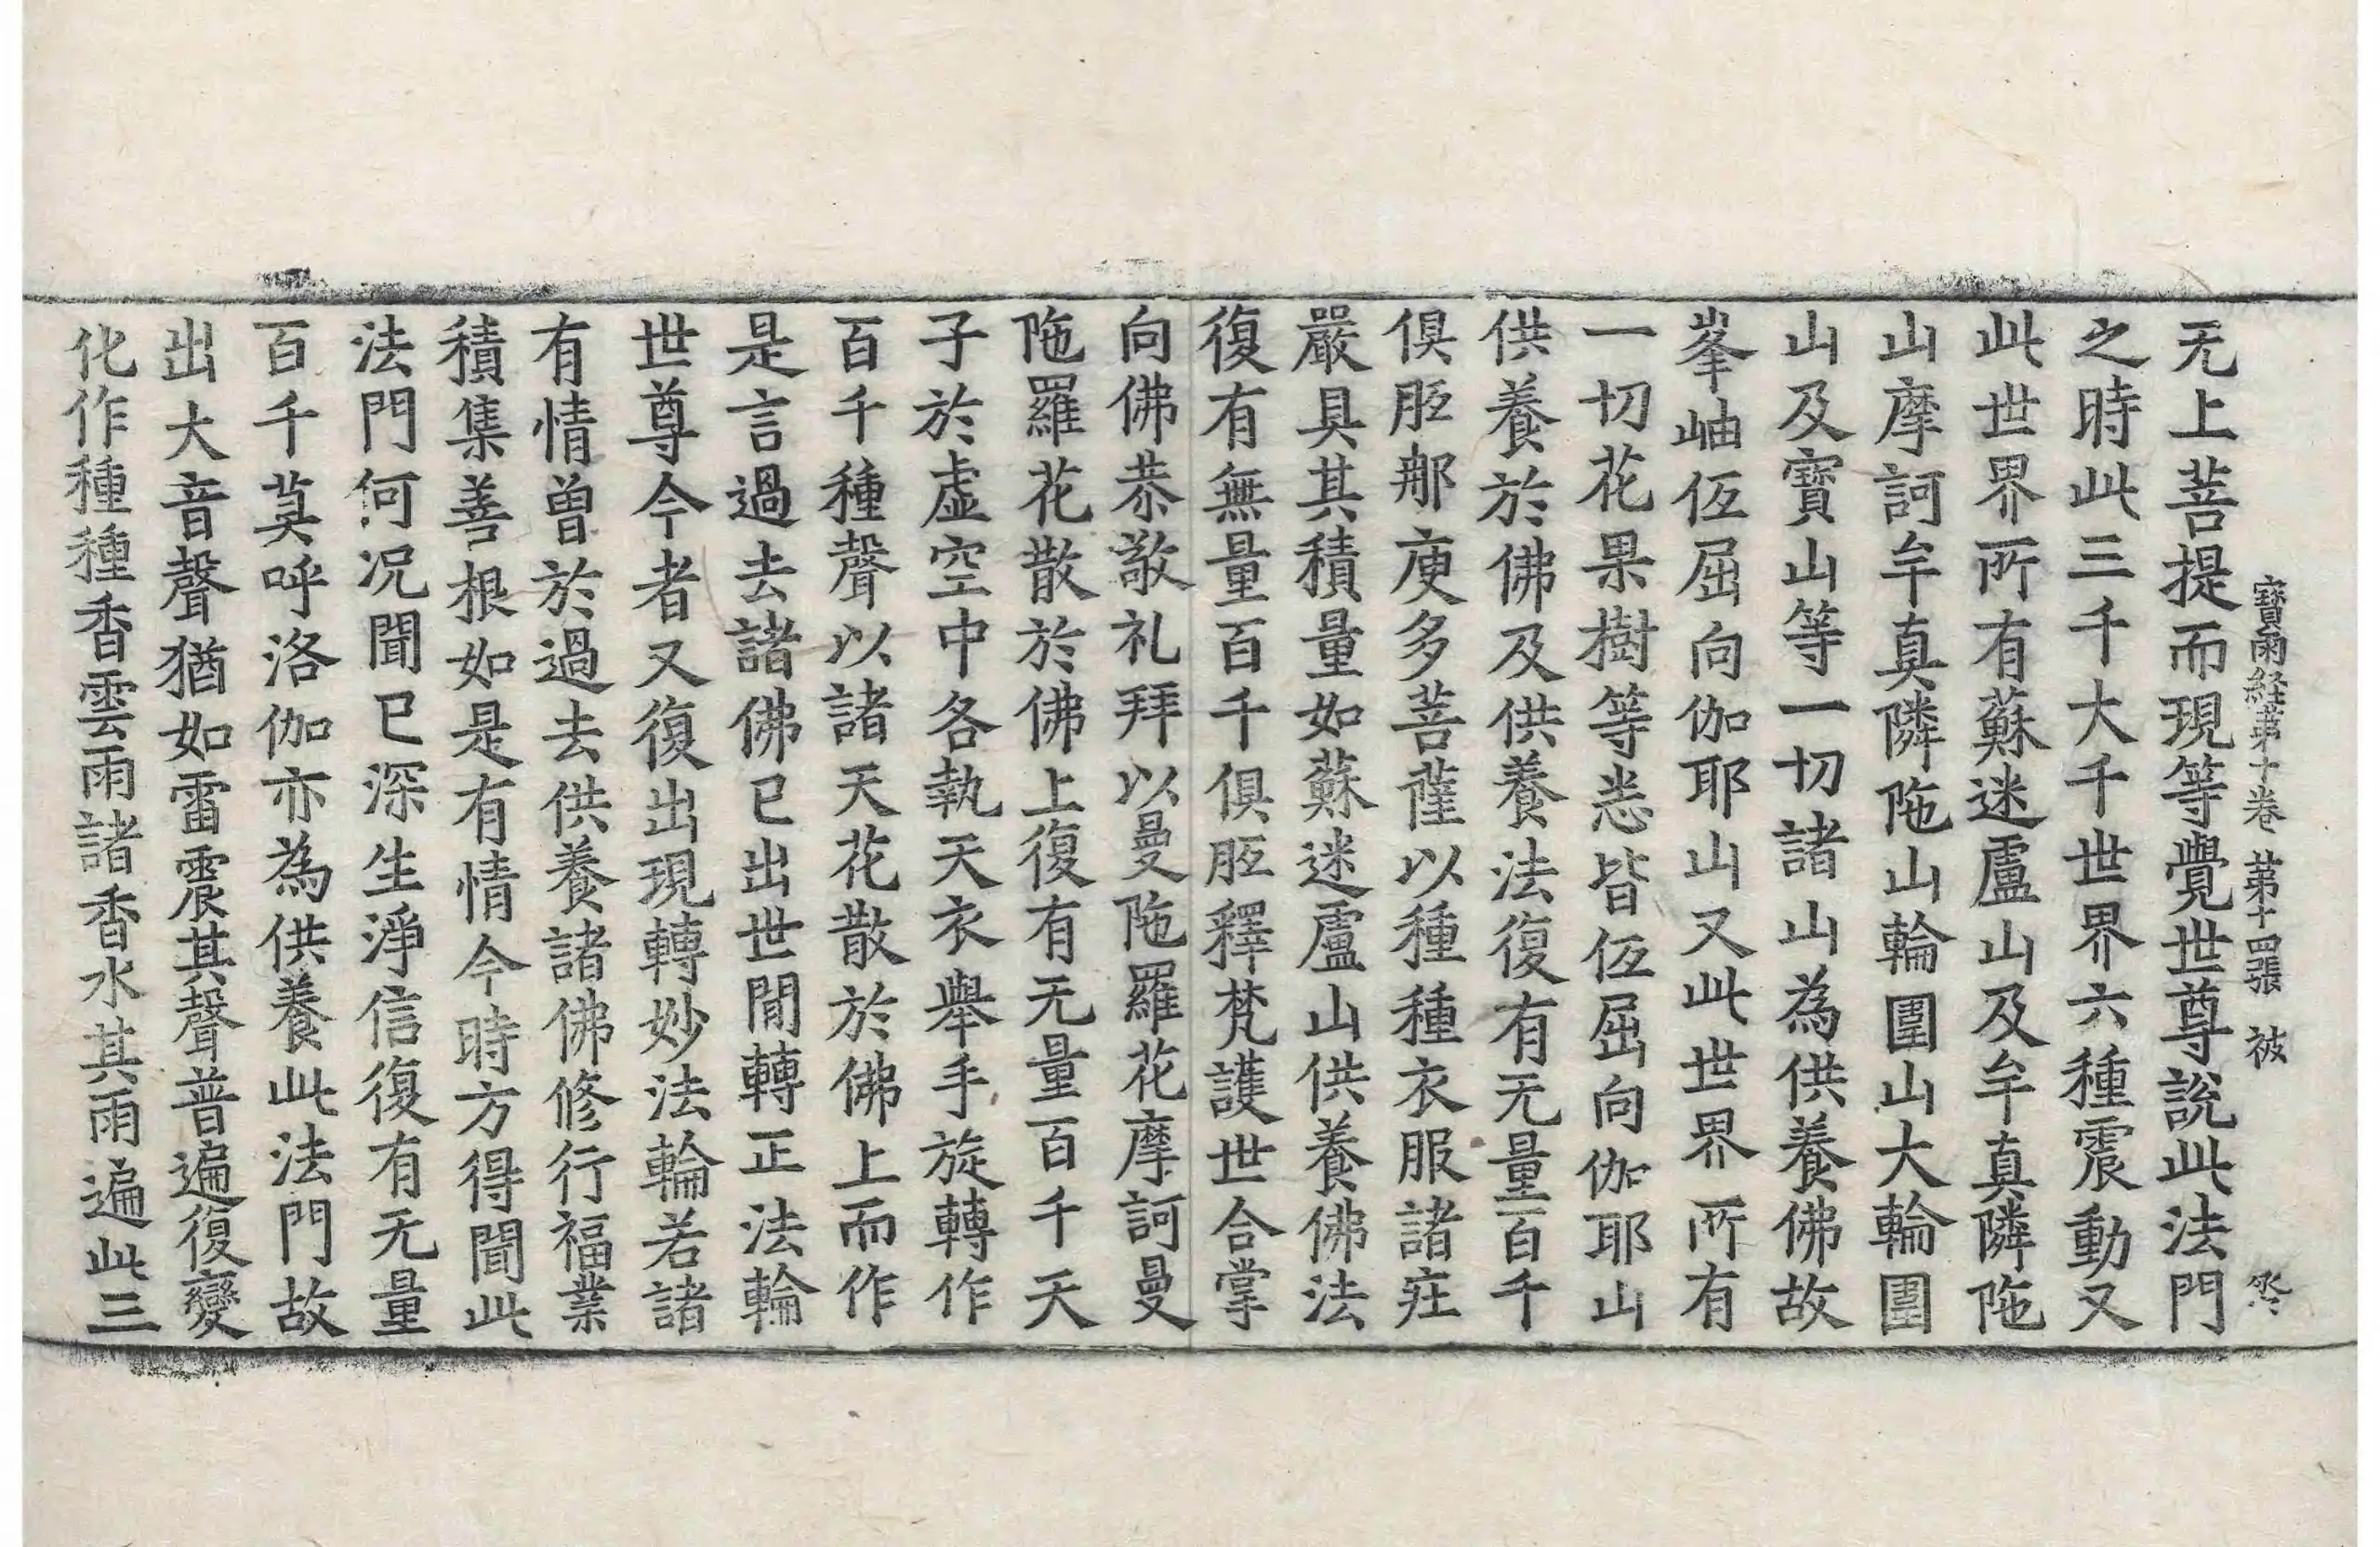 寶雨經第十卷 第十四張 被
无上菩提而現等覺世尊說此法門
之時此三千大千世界六種震動又
此世界所有蘇迷盧山及牟真隣陁
山摩訶牟真隣陁山輪圍山大輪圍
山及寶山等一切諸山為供養佛故
峯岫伍屈向伽耶山又此世界所有
一切花果樹等悉皆伍屈向伽耶山
供養於佛及供養法復有无量百千
俱胝郍庾多菩薩以種種衣服諸莊
嚴具其積量如蘇迷盧山供養佛法
復有無量百千俱胝釋梵護世合掌
向佛恭敬礼拜以曼陁羅花摩訶曼
陁羅花散於佛上復有无量百千天
子於虛空中各執天衣舉手旋轉作
百千種聲以諸天花散於佛上而作
是言過去諸佛已出世間轉正法輪
世尊今者又復出現轉妙法輪若諸
有情曾於過去供養諸佛修行福業
積集善根如是有情今時方得聞此
法門何況聞已深生淨信復有无量
百千莫呼洛伽亦為供養此法門故
出大音聲猶如雷震其聲普遍復變
化作種種香雲雨諸香水其雨遍此三